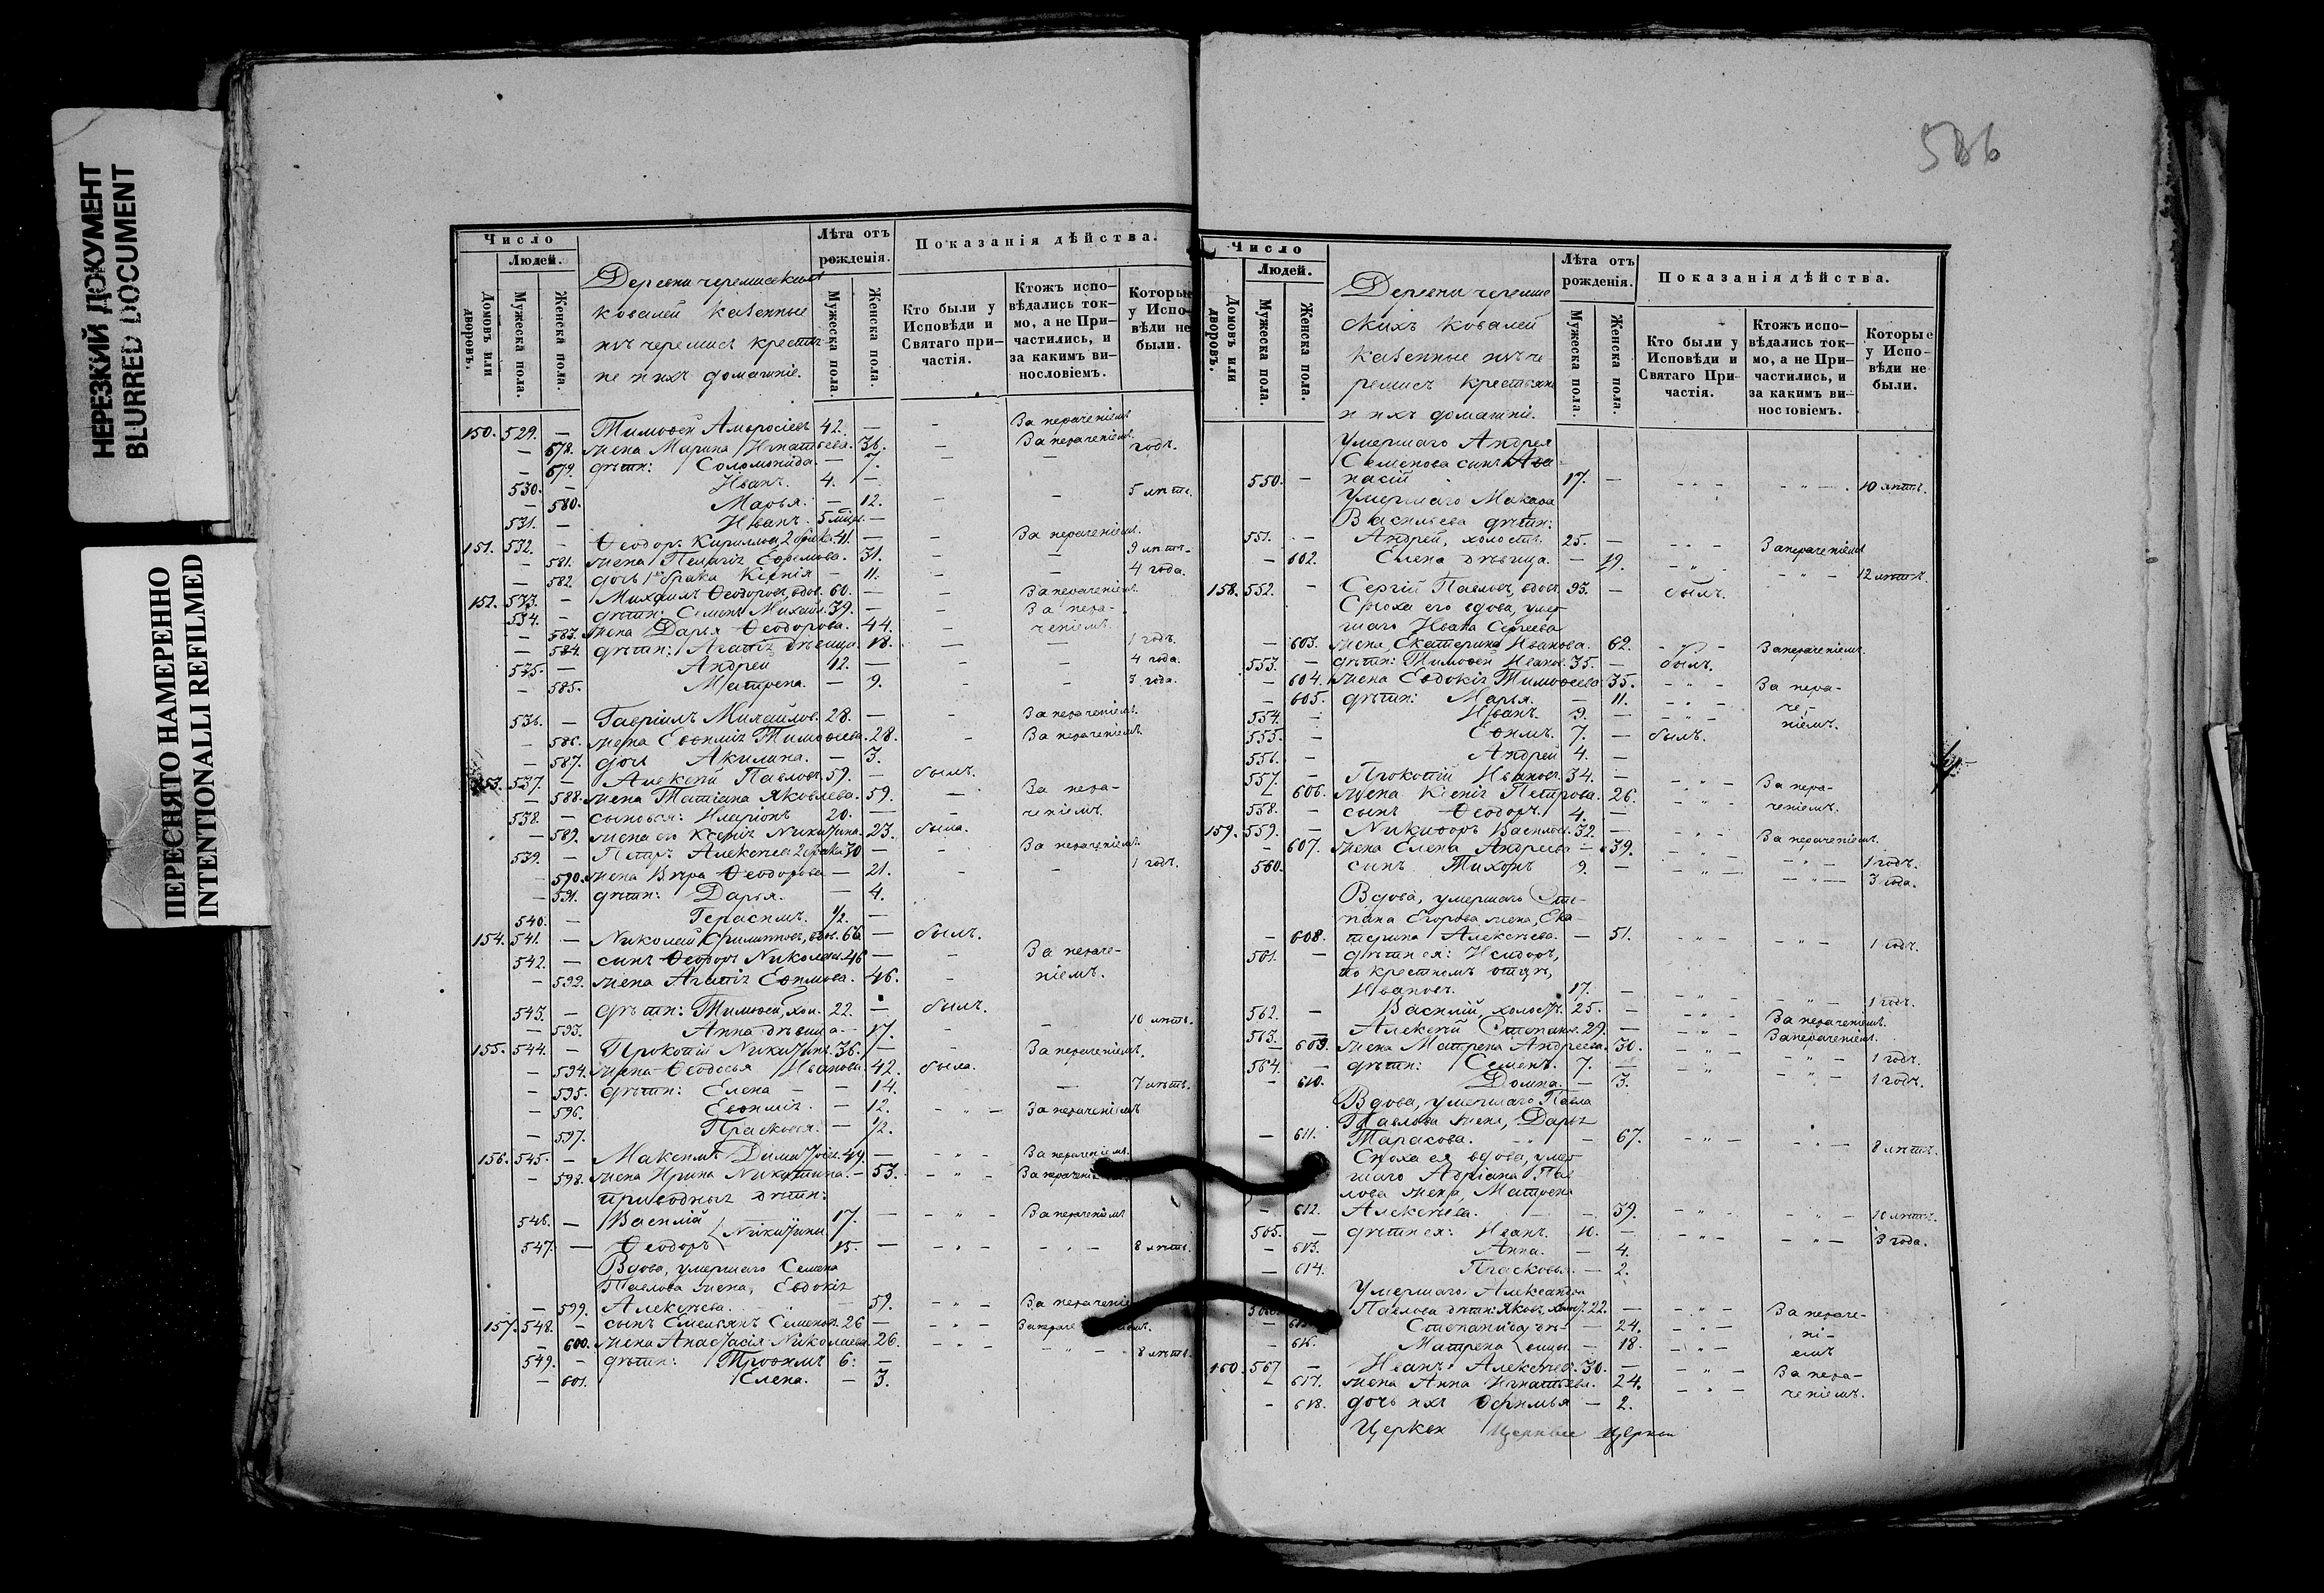 НЕРЕЗКИЙ ДОКУМЕНТ
BLURRED DOCUMENT
ПЕРЕСНЯТО НАМЕРЕННО
INTENTIONALLI REFILMED
Число
Людей.
Домовъ или дворовъ.
Мужеска пола.
Женска пола.
Деревни черемискихъ
ковалей казенные
изъ черемисъ крестья
не и ихъ домашніе.
Лѣта отъ рожденія.
Мужеска пола.
Женска пола.
Показанія дѣйства.
Кто были у Исповѣди и Святаго причастія.
Ктожъ исповѣдались токмо, а не Причастились, и за какимъ винословіемъ.
Которые у Исповѣди не были.
150. 529. — Тимоѳей Амвросіевъ 42. — - За нераченіемъ
— 578. жена Марина Игнатьева. 36. — За нераченіемъ.
— 579. дѣти: Соломонида. — 7. — — годъ.
530. — Иванъ. 4. —
— 580. Марья. — 12. - - 5 лѣтъ.
531. — Иванъ. 5 мцъ. —
151. 532. — Ѳеодоръ Кириловъ 2 брака 41. — - За нераченіемъ.
— 581. жена Пелагія Ефремова. 31. - — 9 лѣтъ.
— 582. дочь 1го брака Ксенія — 11. - — 4 года.
152. 533. — Михаилъ Ѳеодоровъ, вдов. 60. — - За нераченіемъ.
534. — дѣти: Семенъ Михайл. 39. — - За нера-
— 583. жена Дарья Ѳеодорова. 44. — ченіемъ.
— 584. дѣти: Агапія дѣвица. 18. — — 1 годъ.
535. — Андрей 12. — - - 4 года.
— 585. Матрена. — 9. - - 3 года.
536. — Гавріилъ Михайлов. 28. — - За нераченіемъ.
— 586. жена Евѳимія Тимоѳеева. 28. - За нераченіемъ.
— 587. дочь Акилина. — 3.
153. 537. — Алексѣй Павловъ. 59. — былъ.
— 588. жена Татіана Яковлева. 59. — За нера-
538. — сыновья: Иларіонъ 20. — — ченіемъ.
— 589. жена его Ксенія Никитина. 23. была.
539. — Петръ Алексѣевъ 2 брака 30 — - За нераченіемъ.
— 590. жена Вѣра Ѳеодорова — 21. - - 1 годъ.
— 591. дѣти: Дарья. — 4.
540. — Герасимъ. 1/2. —
154. 541. — Николай Филиповъ, вдов. 66. — былъ.
542. — сынъ Ѳеодоръ Николаевъ 46 — - За нераче-
— 592. жена Агапія Евѳимова. 46. - ніемъ.
543. — дѣти: Тимоѳей, хол. 22. — былъ.
— 593. Анна дѣвица — 17. - - 10 лѣтъ.
155. 544. — Прокопій Никитинъ. 36. — - За нераченіемъ.
— 594. жена Ѳеодосья Иванова. 42. была.
— 595. дѣти: Елена — — 14. — 7 лѣтъ.
— 596. Евѳимія. — 12. - " - За нераченіемъ
— 597. Прасковья. — 1/2.
156. 545. — Максимъ Димитріев. 49. — - " - За нераченіемъ.
— 598. жена Ирина Никитина. — 53. - " - За нераченіе
приводныя дѣти:
546. — Василій 17. — - " - За нераченіемъ
Никитины
547. — Ѳеодоръ 15. — - " - - " - 8 лѣтъ.
Вдова, умершаго Семена
Павлова жена, Евдокія
— 599. Алексѣева. — 59. - " - За нераченіе
157. 548. — сынъ Емельянъ Семенов. 26 — - " -
— 600. жена Анастасія Николаева. 26. - " - - " - 8 лѣтъ.
549. — дѣти: Троѳимъ 6. —
— 601. Елена. — 3.
Число
Людей.
Домовъ или дворовъ.
Мужеска пола.
Женска пола.
Деревни череми
скихъ ковалей
казенные изъ че
ремисъ крестьяне
и ихъ домашніе.
Лѣта отъ рожденія.
Мужеска пола.
Женска пола.
Показанія дѣйства.
Кто были у Исповѣди и Святаго Причастія.
Ктожъ исповѣдались токмо, а не Причастились, и за какимъ винословіемъ.
Которые у Исповѣди не были.
Умершаго Андрея
Семенова сынъ Аѳа-
550. — насій 17. — - " - - " - 10 лѣтъ.
Умершаго Макара
Васильева дѣти:
551. — Андрей, холостъ. 25. — - " - За нераченіемъ
— 602. Елена дѣвица. — 19. - " - - " - 12 лѣтъ.
158. 552. — Сергій Павловъ, вдов. 93. — былъ.
Сноха его вдова, умер
шаго Ивана Сергеева
— 603. жена, Екатерина Иванова. 62. - " - За нераченіемъ.
553. — дѣти: Тимоѳей Иванов. 35. — былъ.
— 604. жена Евдокія Тимоѳеева 35. - " - За нера-
— 605. дѣти: Марья. — 11. - " - че-
554. — Иванъ. 9. — - " - ніемъ.
555. — Еѳимъ. 7. — былъ.
556. — Андрей 4. —
557. — Прокопій Ивановъ. 34. — - " - За нера-
— 606. жена Ксенія Петрова. 26. - " - ченіемъ.
558. — сынъ Ѳеодоръ. 4. —
159. 559. — Никифоръ Василье. 32. — - " - За нераченіемъ.
— 607. жена Елена Андреева — 39. - " - - " - 1 годъ.
560. — сынъ Тихонъ 9. — - " - - " - 3 года.
Вдова, умершаго Сте-
пана Егорова жена, Ека-
— 608. терина Алексѣева. — 51. - " - - " - 1 годъ.
561. — дѣти ея: Исидоръ,
по крестномъ отцѣ,
Ивановъ. 17. — - " - - " - 1 годъ.
562. — Василій, холостъ. 25. — - " - За нераченіемъ.
563. — Алексѣй Степанов. 29. — - " - За нераченіемъ.
— 609. жена Матрена Андреева. 30. - " - - " - 1 годъ.
564. — дѣти: Семенъ. 7. — - " - - " - 1 годъ.
— 610. Домна. — 3.
Вдова, умершаго Павла
Павлова жена, Дарья
— 611. Тарасова. — 67. - " - - " - 8 лѣтъ.
Сноха ея вдова, умер
шаго Адріана Пав
лова жена, Матрена
— 612. Алексѣева. — 39. - " - - " - 10 лѣтъ.
565. — дѣти ея: Иванъ. 10. — - " - - " - 3 года.
— 613. Анна. — 4.
— 614. Прасковья. — 2.
Умершаго Александра
Павлова дѣти: Яковъ, холост. 22. — - " - За нераче-
Степанида дѣ- — 24. - " - ні-
— 616. Матрена вицы — 18. - " - емъ
160. 567 — Иванъ Алексѣев. 30. — - " - За нера-
— 617. жена Анна Игнатьева. 24. - " - ченіемъ.
— 618. дочь ихъ — 2.